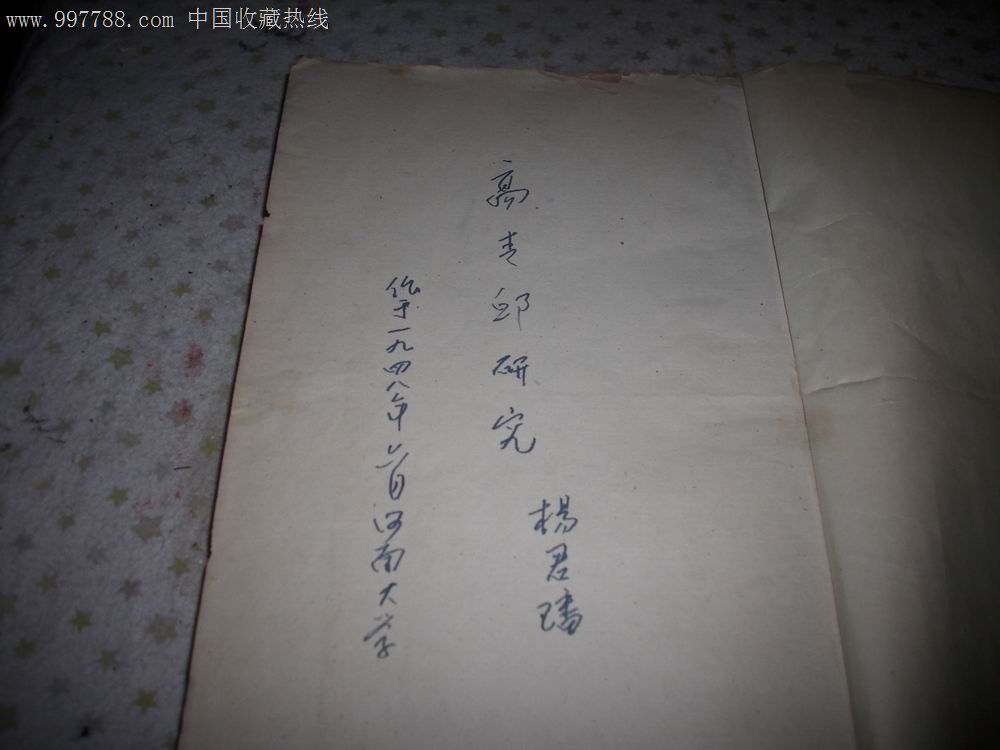 www.997788.com 中国收藏热线
高青邱研究
楊君璠
作于一九四八年六月河南大学